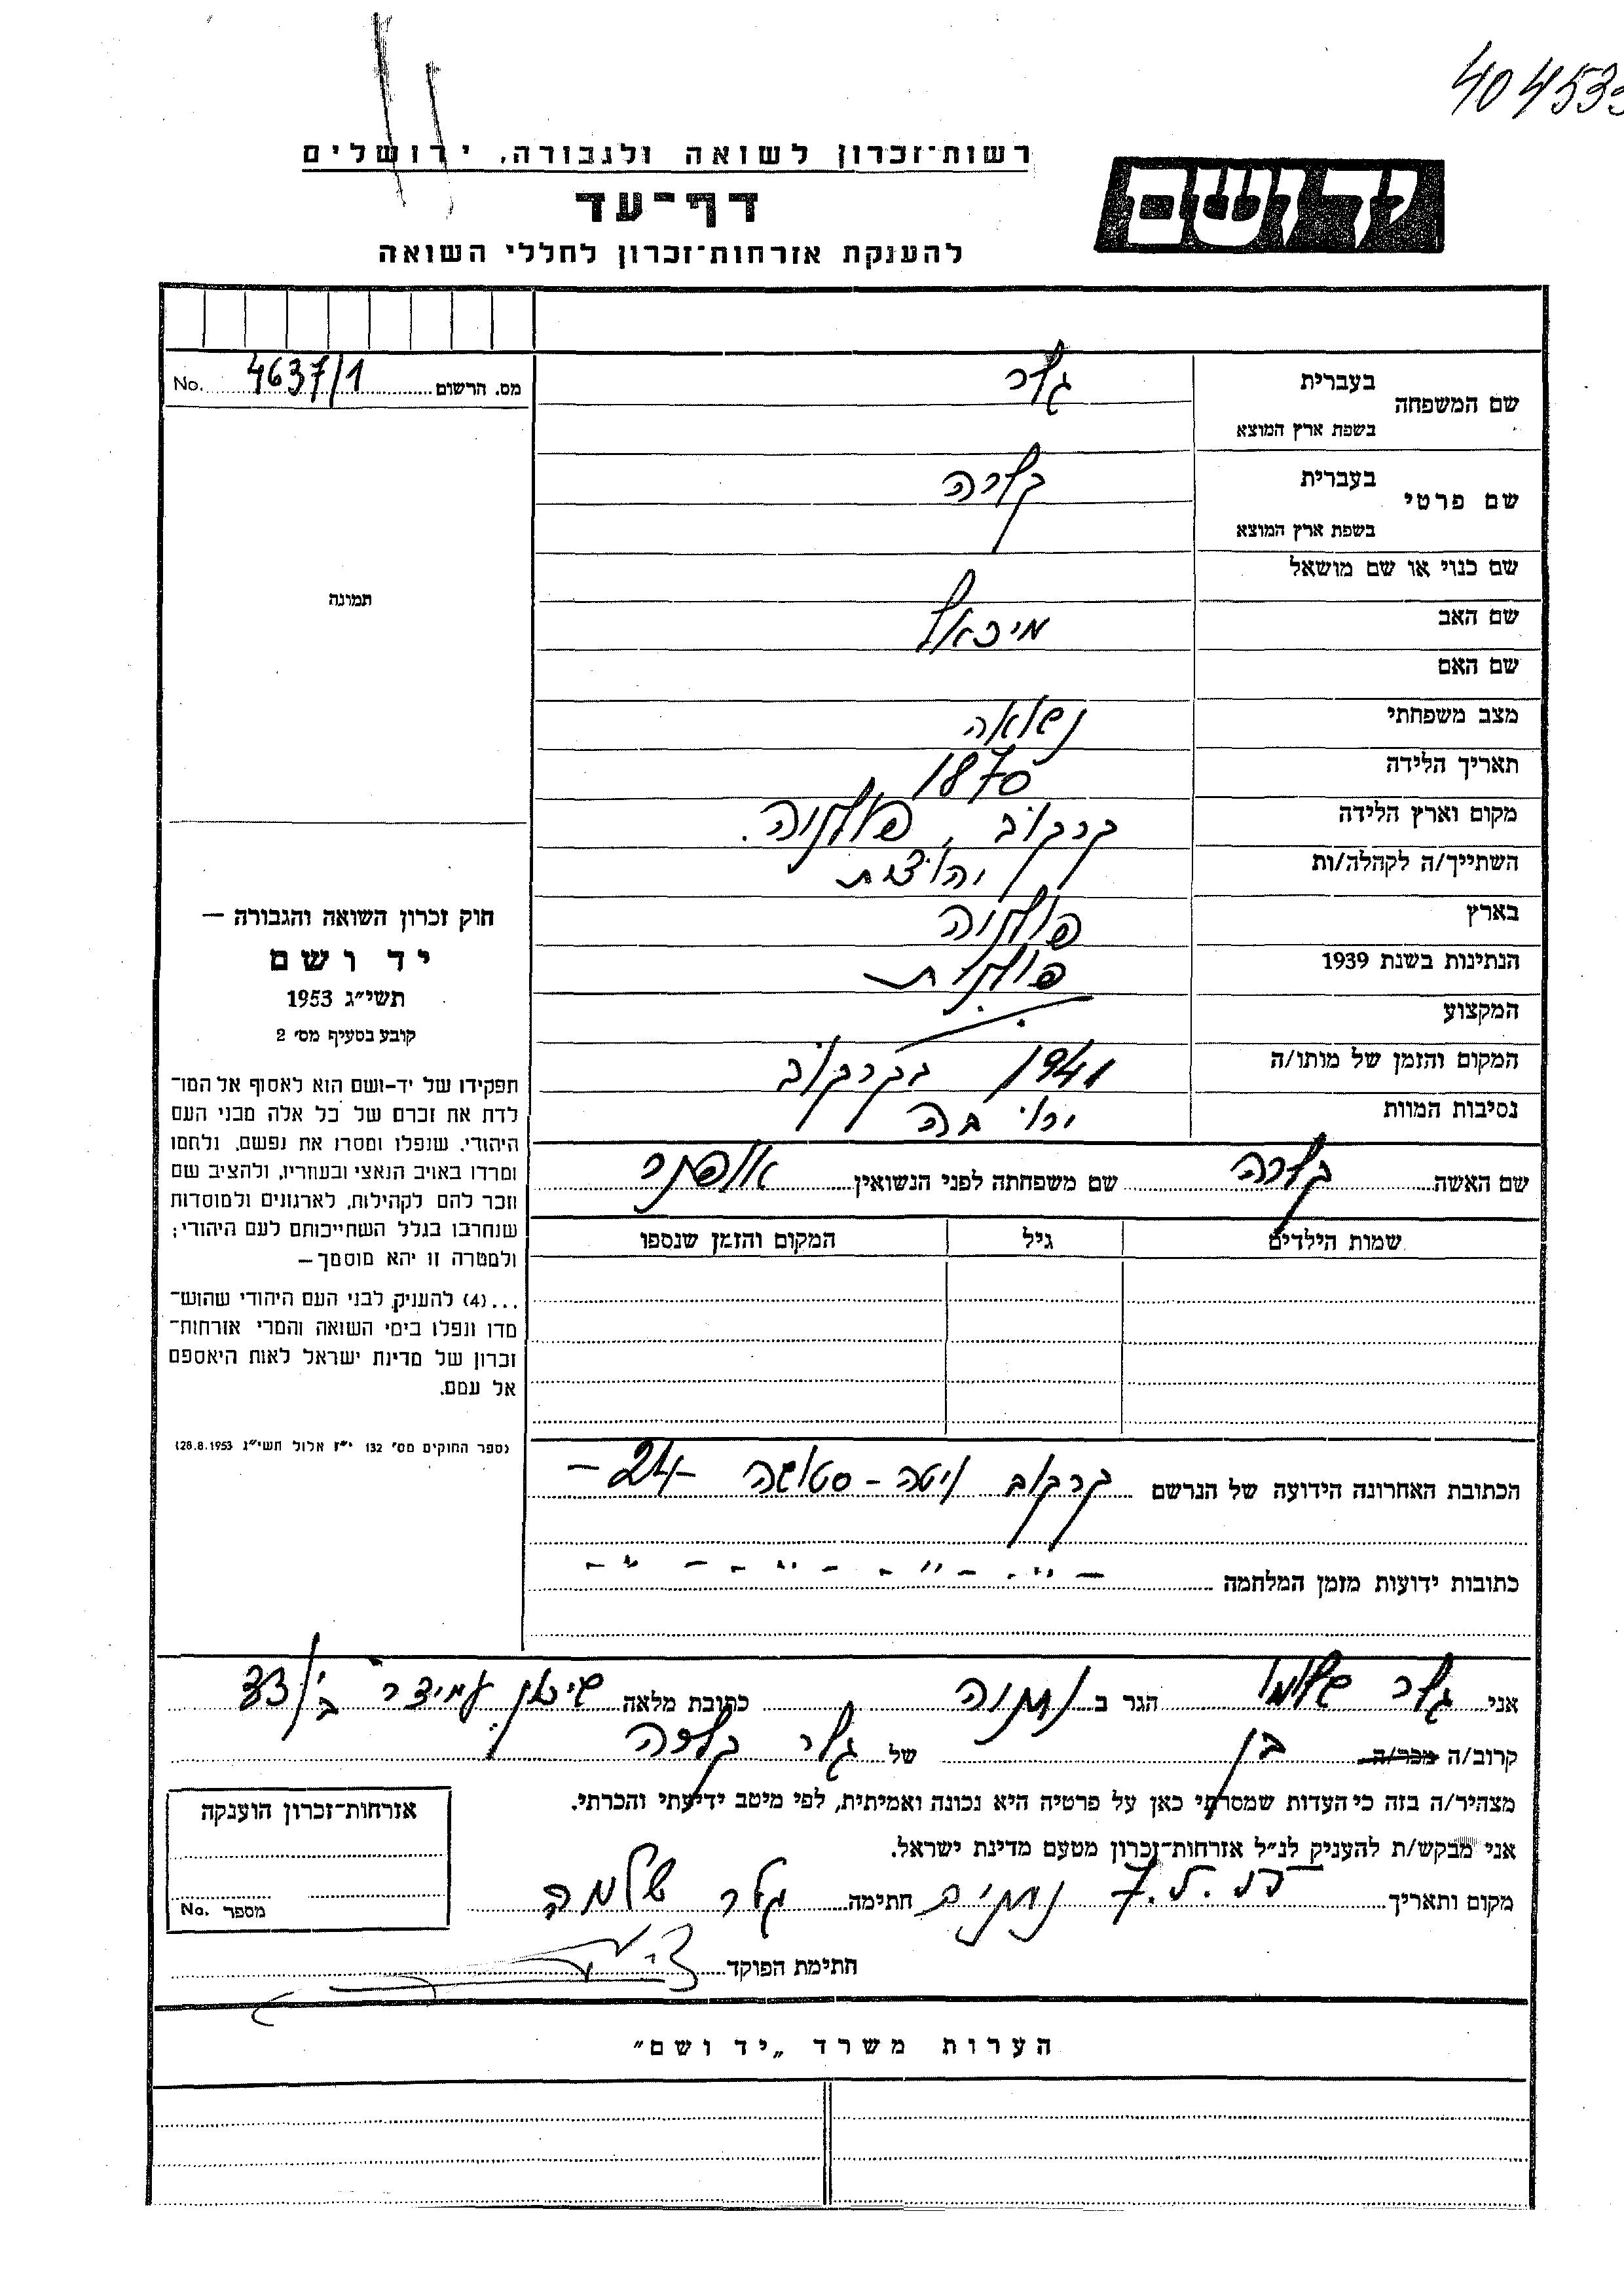 404533
רשות־זכרון לשואה ולגבורה, ירושלים
דף־עד
להענקת אזרחות־זכרון לחללי השואה
יד ושם
No. 4637/1 מס. הרשום
שם המשפחה
בעברית גלר
בשפת ארץ המוצא
שם פרטי
בעברית קלרה
בשפת ארץ המוצא
שם כנוי או שם מושאל
שם האב מיכאל
שם האם
מצב משפחתי נשואה
תאריך הלידה 1870
מקום וארץ הלידה קרקוב, פולניה.
השתייך/ה לקהלה/ות יהודית
בארץ פולניה
הנתינות בשנת 1939 פולנית
המקצוע
המקום והזמן של מותו/ה 1941 בקרקוב
נסיבות המוות
שם האשה קלרה שם משפחתה לפני הנשואין
שמות הילדים גיל המקום והזמן שנספו
תמונה
חוק זכרון השואה והגבורה —
יד ושם
תשי״ג 1953
קובע בסעיף מס׳ 2
תפקידו של יד-ושם הוא לאסוף אל המו־
לדת את זכרם של כל אלה מבני העם
היהודי, שנפלו ומסרו את נפשם, ולחמו
ומרדו באויב הנאצי ובעוזריו, ולהציב שם
וזכר להם לקהילות, לארגונים ולמוסדות
שנחרבו בגלל השתייכותם לעם היהודי;
ולמטרה זו יהא מוסמך —
...(4) להעניק לבני העם היהודי שהוש־
מדו ונפלו בימי השואה והמרי אזרחות־
זכרון של מדינת ישראל לאות היאספם
אל עמם.
(ספר החוקים מס׳ 132 י״ז אלול תשי״ג 28.8.1953)
הכתובת האחרונה הידועה של הנרשם קרקוב ויטה - סטוושה 24 -
כתובות ידועות מזמן המלחמה - " - " - " - " -
אני גלר שלמה הגר ב נתניה כתובת מלאה שיכון עמידר
קרוב/ה מכר/ה בן של גלר קלרה
מצהיר/ה בזה כי העדות שמסרתי כאן על פרטיה היא נכונה ואמיתית, לפי מיטב ידיעתי והכרתי.
אני מבקש/ת להעניק לנ״ל אזרחות־זכרון מטעם מדינת ישראל.
מקום ותאריך חתימה גלר שלמה
חתימת הפוקד
אזרחות־זכרון הוענקה
No. מספר
הערות משרד „יד ושם״